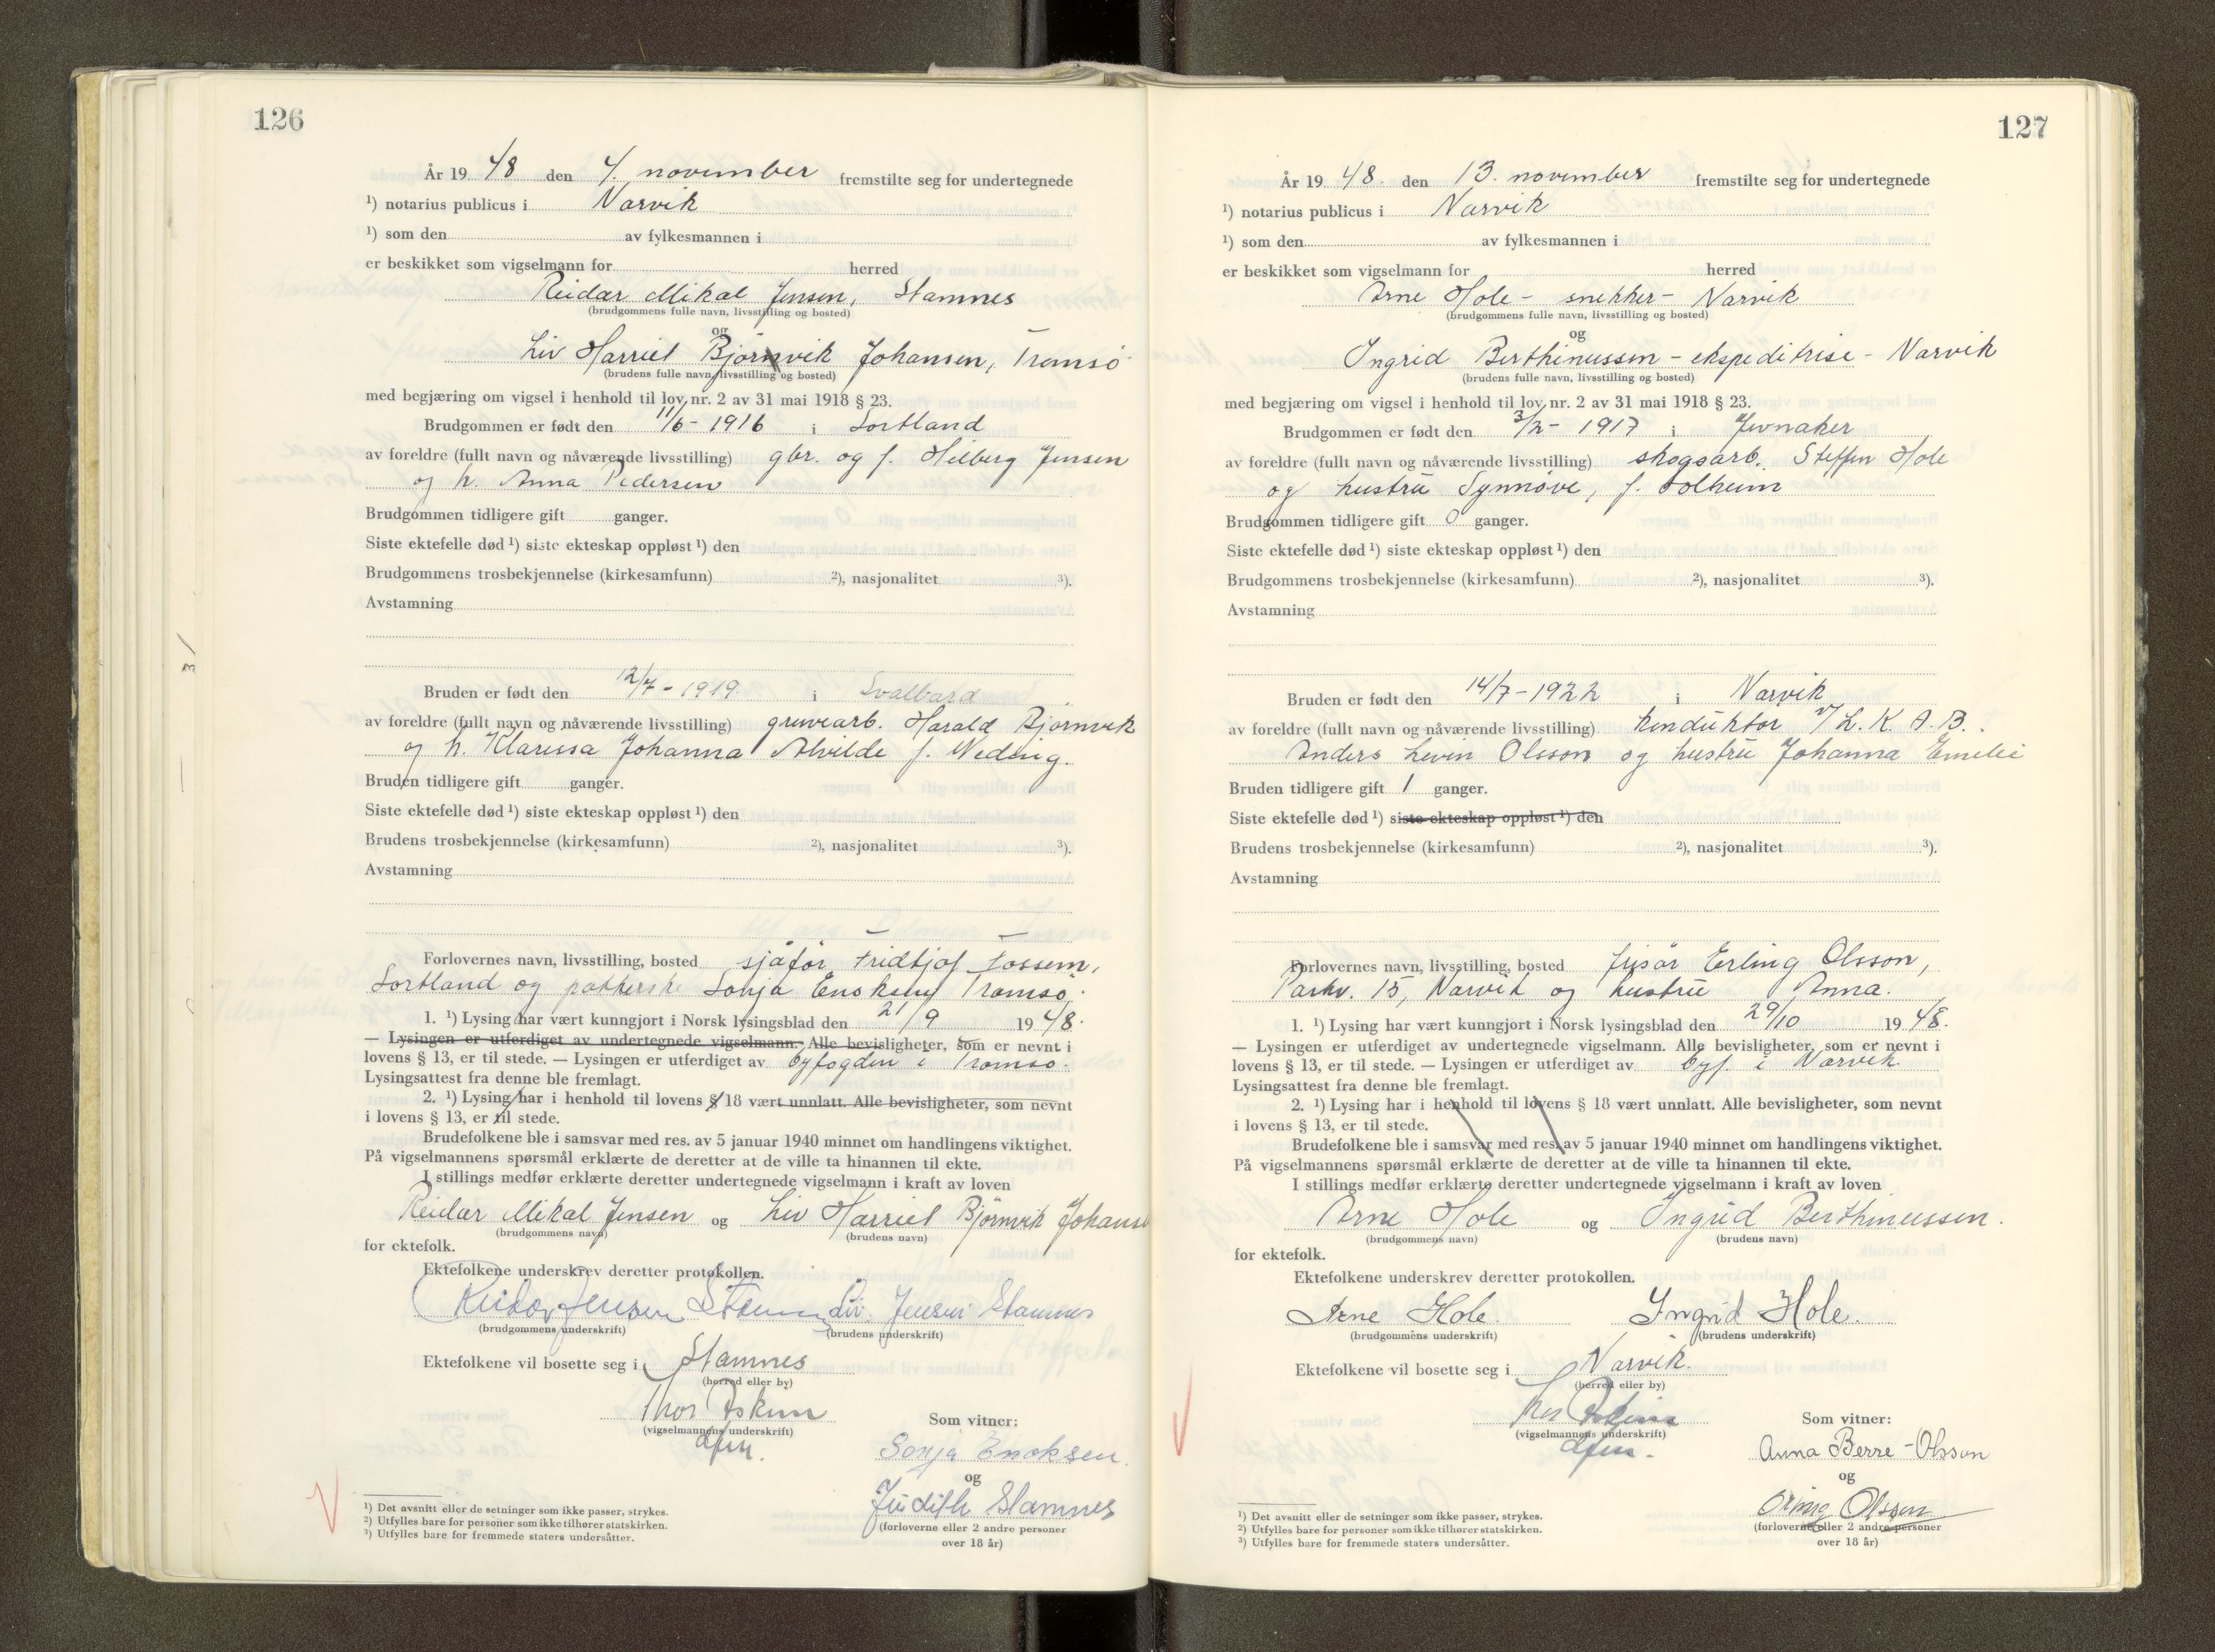 126
År 19 48 den 4. november fremstilte seg for undertegnede
¹) notarius publicus i Narvik
¹) som den av fylkesmannen i
er beskikket som vigselmann for herred
Reidar Mikal Jensen, Stamnes
(brudgommens fulle navn, livsstilling og bosted)
og
Liv Harriet Bjørnvik Johansen, Tromsø
(brudens fulle navn, livsstilling og bosted)
med begjæring om vigsel i henhold til lov nr. 2 av 31 mai 1918 § 23.
Brudgommen er født den 11/6 - 1916 i Sortland
av foreldre (fullt navn og nåværende livsstilling) gbr. og f. Hilberg Jensen
og h. Anna Pedersen
Brudgommen tidligere gift ganger.
Siste ektefelle død ¹) siste ekteskap oppløst ¹) den
Brudgommens trosbekjennelse (kirkesamfunn) ²), nasjonalitet ³).
Avstamning
Bruden er født den 12/7 - 1919 i Svalbard
av foreldre (fullt navn og nåværende livsstilling) gruvearb. Harald Bjørnvik
og h. Klarissa Johanna Alvilde f.
Bruden tidligere gift ganger.
Siste ektefelle død ¹) siste ekteskap oppløst ¹) den
Brudens trosbekjennelse (kirkesamfunn) ²), nasjonalitet ³).
Avstamning
Forlovernes navn, livsstilling, bosted sjåfør Fridtjof Fossem,
Sortland og Sonja Enoksen Tromsø.
1. ¹) Lysing har vært kunngjort i Norsk lysingsblad den 21/9 19 48.
— Lysingen er utferdiget av undertegnede vigselmann. Alle bevisligheter, som er nevnt i
lovens § 13, er til stede. — Lysingen er utferdiget av byfogden i Tromsø.
Lysingsattest fra denne ble fremlagt.
2. ¹) Lysing har i henhold til lovens § 18 vært unnlatt. Alle bevisligheter, som nevnt
i lovens § 13, er til stede.
Brudefolkene ble i samsvar med res. av 5 januar 1940 minnet om handlingens viktighet.
På vigselmannens spørsmål erklærte de deretter at de ville ta hinannen til ekte.
I stillings medfør erklærte deretter undertegnede vigselmann i kraft av loven
Reidar Mikal Jensen og Liv Harriet Bjørnvik Johans
(brudgommens navn) (brudens navn)
for ektefolk.
Ektefolkene underskrev deretter protokollen.
Reidar Jensen Liv. Jensen Stamnes
(brudgommens underskrift) (brudens underskrift)
Ektefolkene vil bosette seg i Stamnes
(herred eller by)
Thor Askim
(vigselmannens underskrift)
dfm.
Som vitner:
Sonja Enoksen.
og
Judith Stamnes
(forloverne eller 2 andre personer
over 18 år)
¹) Det avsnitt eller de setninger som ikke passer, strykes.
²) Utfylles bare for personer som ikke tilhører statskirken.
³) Utfylles bare for fremmede staters undersåtter.
127
År 19 48. den 13. november fremstilte seg for undertegnede
¹) notarius publicus i Narvik
¹) som den av fylkesmannen i
er beskikket som vigselmann for herred
Arne Hole - snekker - Narvik
(brudgommens fulle navn, livsstilling og bosted)
og
Ingrid Berthinussen - ekspeditrise - Narvik
(brudens fulle navn, livsstilling og bosted)
med begjæring om vigsel i henhold til lov nr. 2 av 31 mai 1918 § 23.
Brudgommen er født den 3/2 - 1917 i Jevnaker
av foreldre (fullt navn og nåværende livsstilling) skogsarb. Steffen Hole
og hustru Synnøve, f. Solheim
Brudgommen tidligere gift 0 ganger.
Siste ektefelle død ¹) siste ekteskap oppløst ¹) den
Brudgommens trosbekjennelse (kirkesamfunn) ²), nasjonalitet ³).
Avstamning
Bruden er født den 14/7 - 1922 i Narvik
av foreldre (fullt navn og nåværende livsstilling) konduktør v/L.K.A.B.
Anders Levin Olsson og hustru Johanna Emelie
Bruden tidligere gift 1 ganger.
Siste ektefelle død ¹) siste ekteskap oppløst ¹) den
Brudens trosbekjennelse (kirkesamfunn) ²), nasjonalitet ³).
Avstamning
Forlovernes navn, livsstilling, bosted frisør Erling Olsson,
Parkv. 15, Narvik og hustru Anna.
1. ¹) Lysing har vært kunngjort i Norsk lysingsblad den 29/10 19 48.
— Lysingen er utferdiget av undertegnede vigselmann. Alle bevisligheter, som er nevnt i
lovens § 13, er til stede. — Lysingen er utferdiget av byf. i Narvik.
Lysingsattest fra denne ble fremlagt.
2. ¹) Lysing har i henhold til lovens § 18 vært unnlatt. Alle bevisligheter, som nevnt
i lovens § 13, er til stede.
Brudefolkene ble i samsvar med res. av 5 januar 1940 minnet om handlingens viktighet.
På vigselmannens spørsmål erklærte de deretter at de ville ta hinannen til ekte.
I stillings medfør erklærte deretter undertegnede vigselmann i kraft av loven
Arne Hole og Ingrid Berthinussen.
(brudgommens navn) (brudens navn)
for ektefolk.
Ektefolkene underskrev deretter protokollen.
Arne Hole. Ingrid Hole.
(brudgommens underskrift) (brudens underskrift)
Ektefolkene vil bosette seg i Narvik.
(herred eller by)
Thor Askim
(vigselmannens underskrift)
dfm.
Som vitner:
Anna Berre-Olsson
og
Erling Olsson
(forloverne eller 2 andre personer
over 18 år)
¹) Det avsnitt eller de setninger som ikke passer, strykes.
²) Utfylles bare for personer som ikke tilhører statskirken.
³) Utfylles bare for fremmede staters undersåtter.